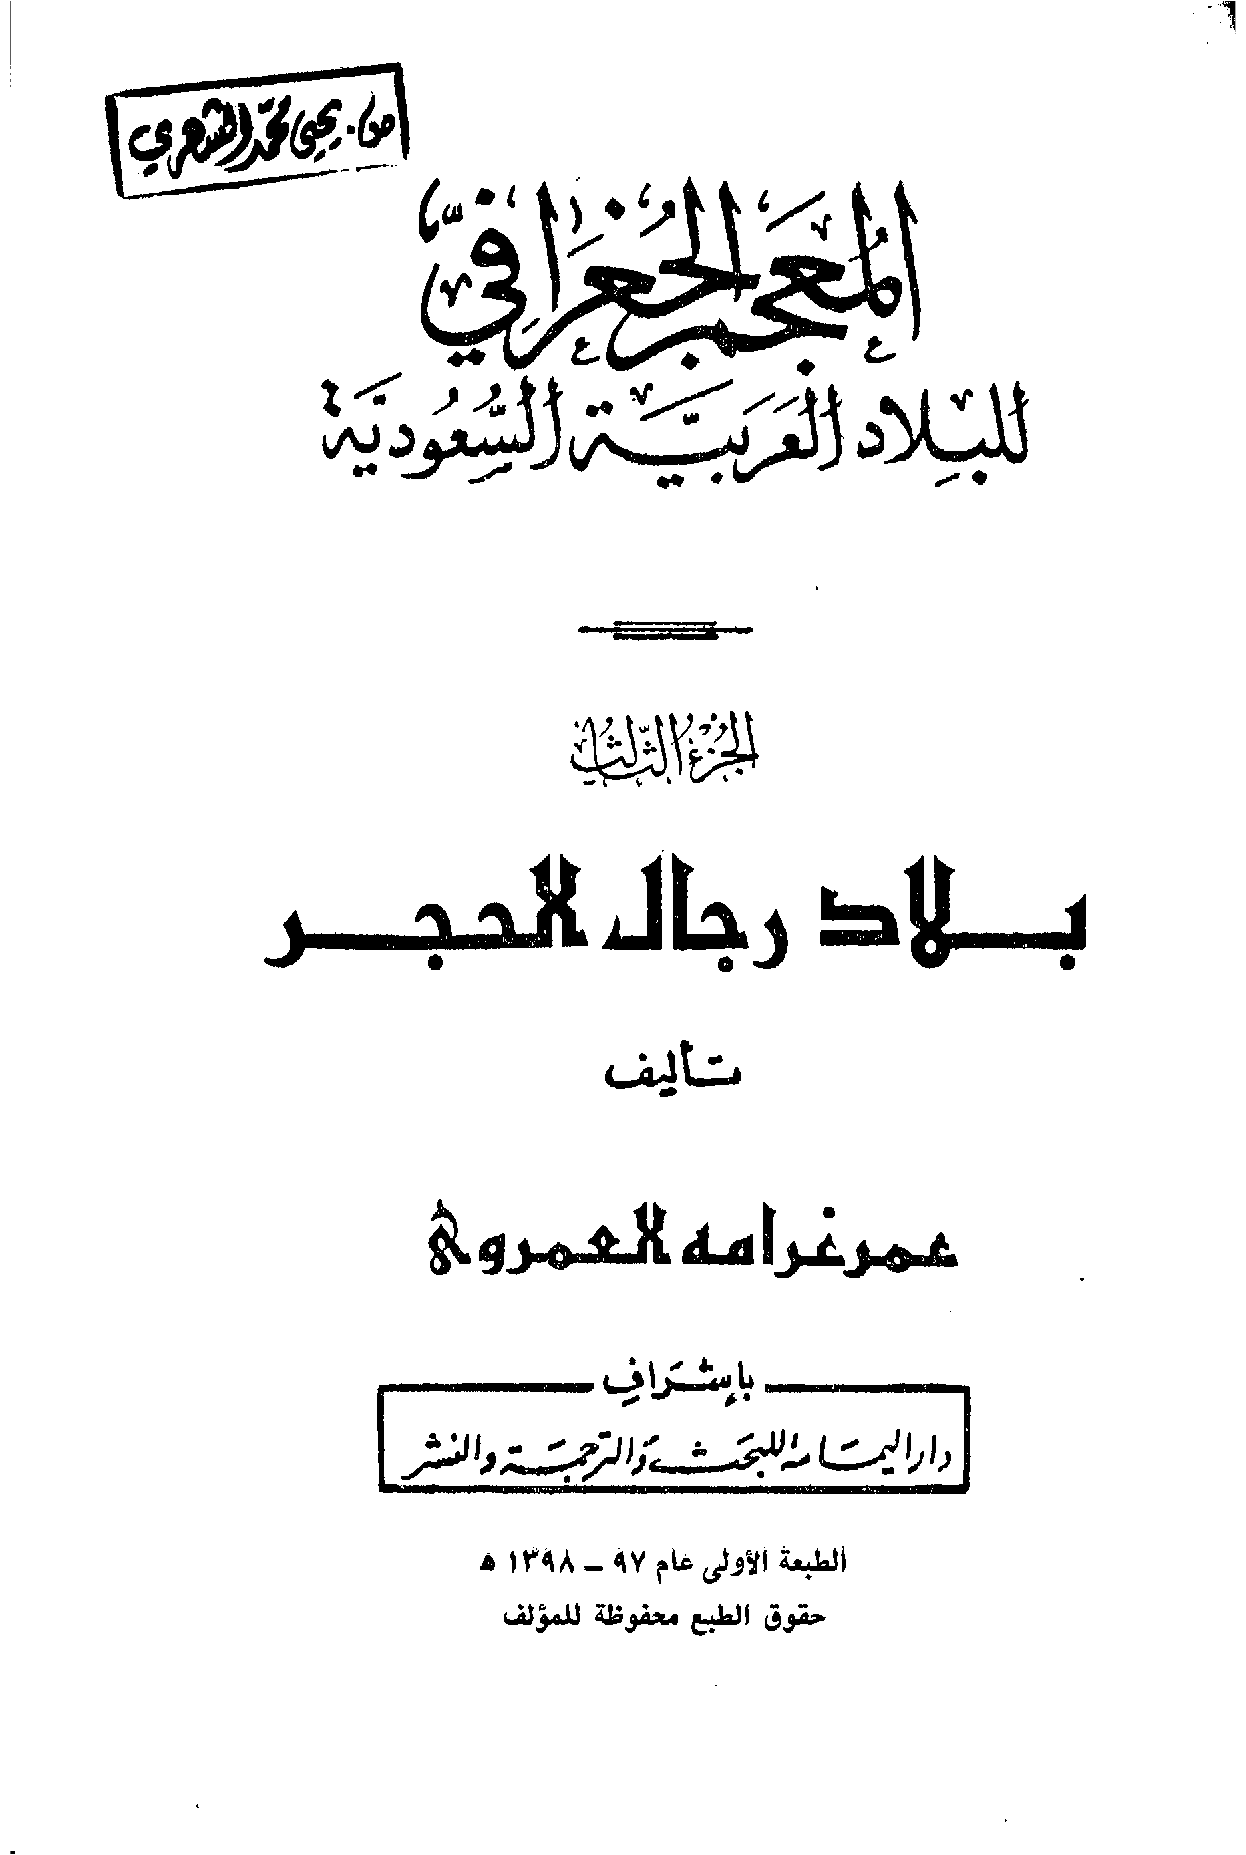 ص. يحيى محمد الشهري
المعجم الجغرافي
للبلاد العربية السعودية
الجزء الثالث
بلاد رجال الحجر
تأليف
عمر غرامه العمروي
بإشراف
دار اليمامة للبحث والترجمة والنشر
الطبعة الأولى عام ٩٧ – ١٣٩٨ ه
حقوق الطبع محفوظة للمؤلف